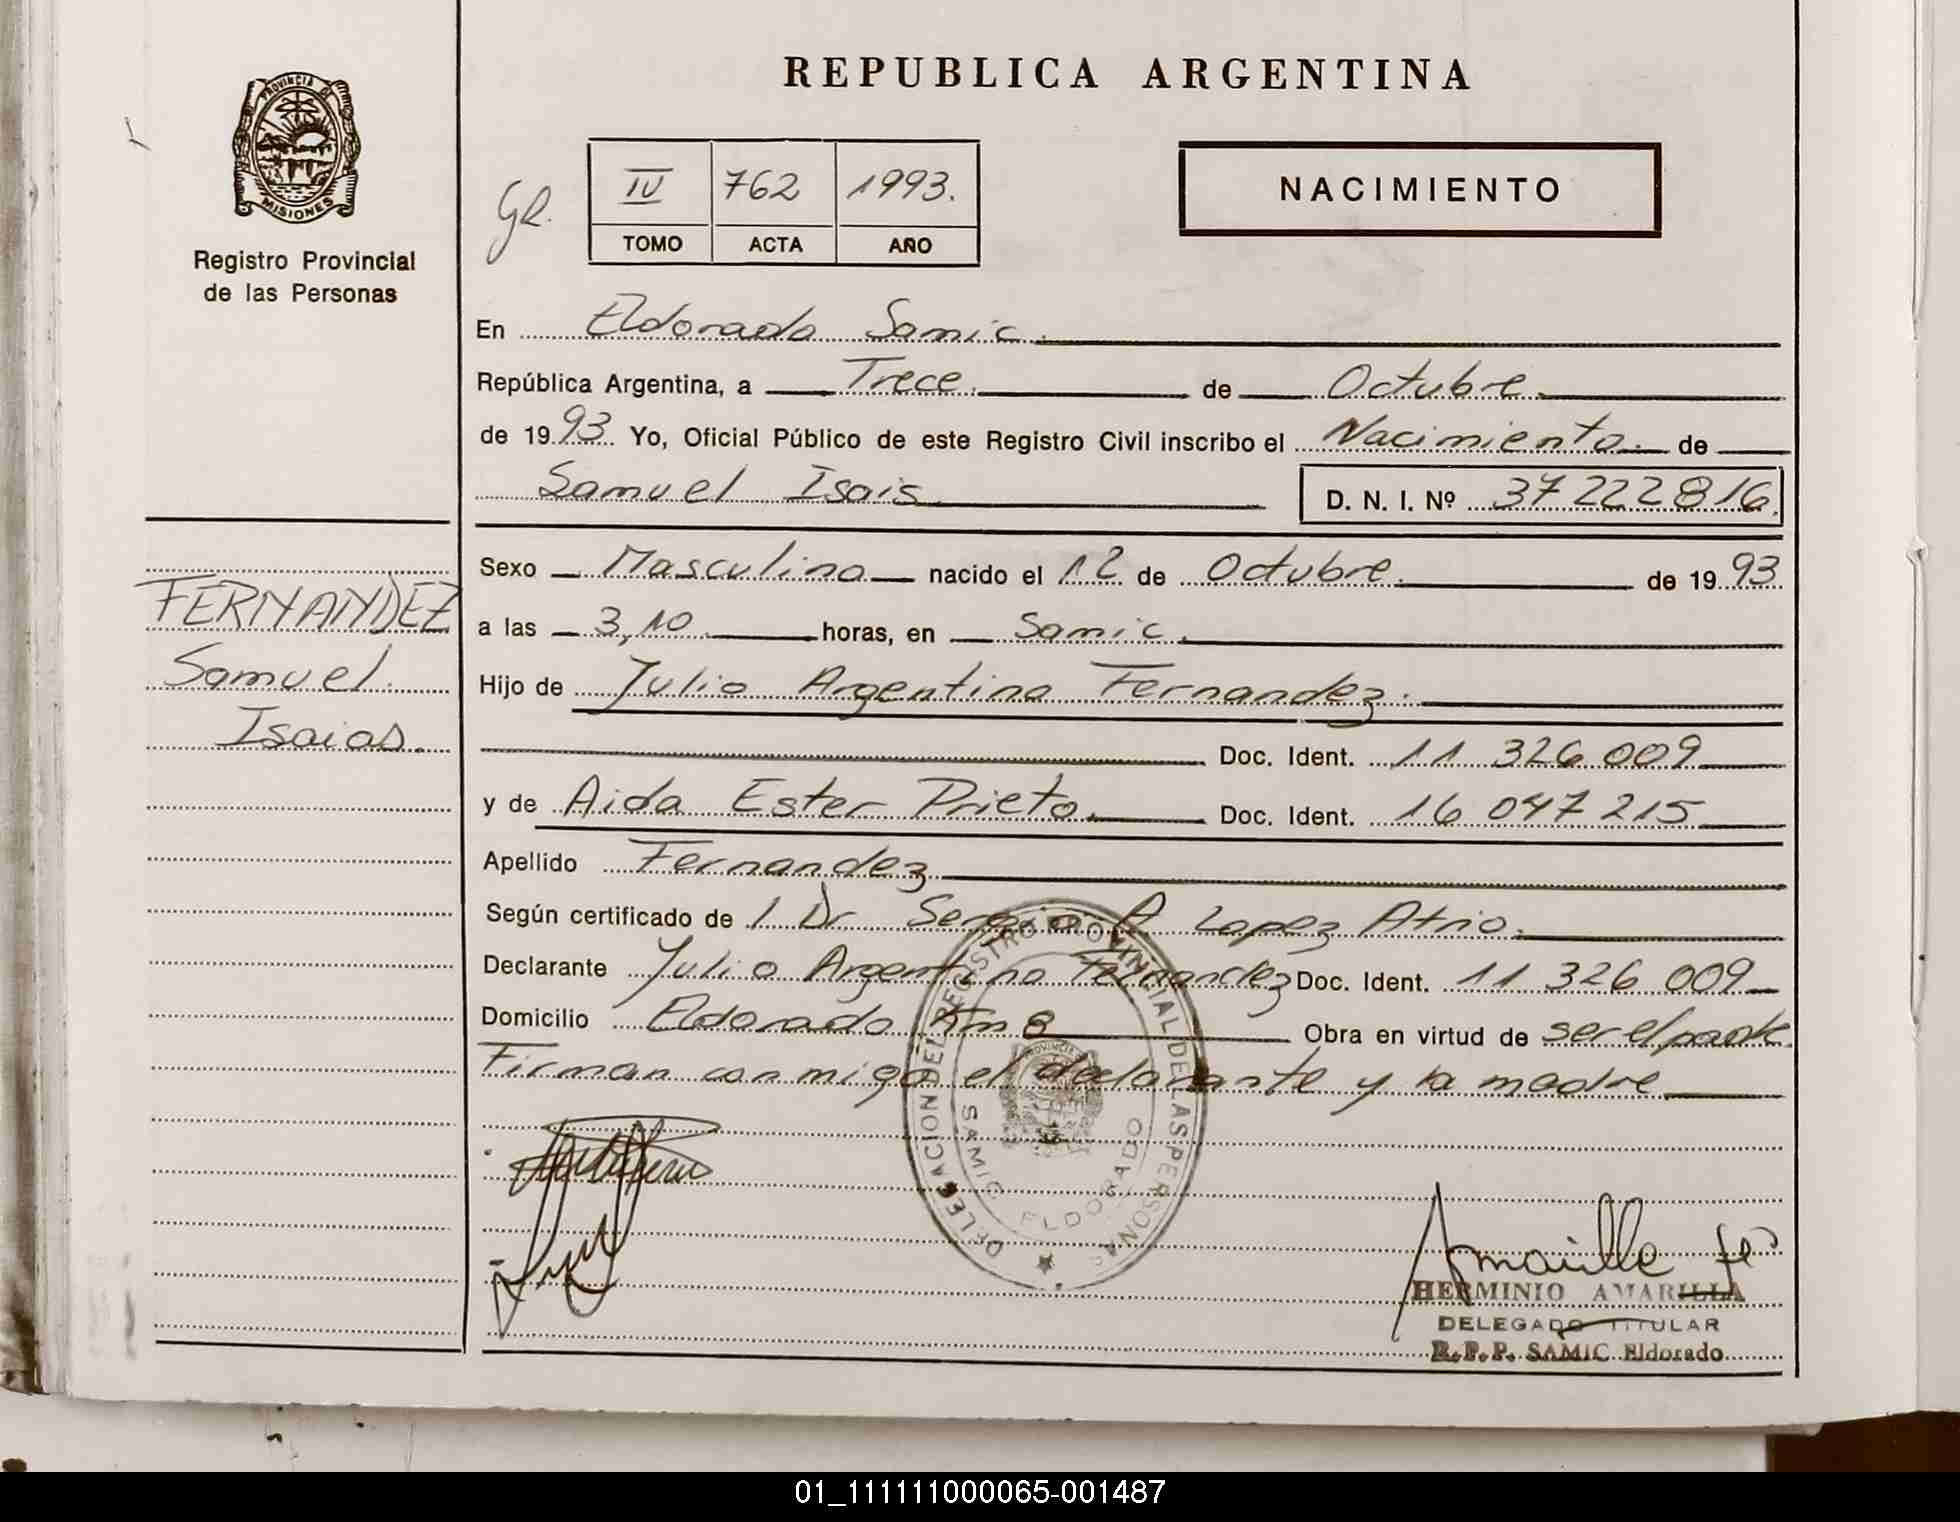 REPUBLICA ARGENTINA
PROVINCIA DE
MISIONES
Registro Provincial
de las Personas
IV 762 1993.
TOMO ACTA AÑO
NACIMIENTO
En Eldorado Samic.
República Argentina, a Trece. de Octubre.
de 1993 Yo, Oficial Público de este Registro Civil inscribo el Nacimiento. de
Samuel Isais D. N. I. Nº 37 222 816.
Sexo Masculino nacido el 12 de Octubre. de 1993
a las 3,10 horas, en Samic.
Hijo de Julio Argentino Fernandez.
Doc. Ident. 11 326 009
y de Aida Ester Prieto. Doc. Ident. 16 047 215
Apellido Fernandez
Según certificado de 1 Dr Sergio A Lopez Atrio.
Declarante Julio Argentino Fernandez Doc. Ident. 11 326 009
Domicilio Eldorado Km 8 Obra en virtud de ser el padre.
Firman conmigo el declarante y la madre
FERNANDEZ
Samuel
Isaias.
DELEGACION DEL REGISTRO PROVINCIAL DE LAS PERSONAS
SAMIC ELDORADO
HERMINIO AMARILLA
DELEGADO TITULAR
R.P.P. SAMIC Eldorado
01_111111000065-001487